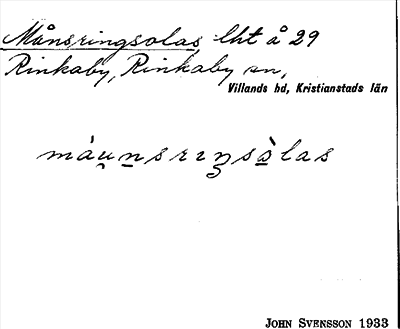 Månsringsolas, lht å 29
Rinkaby, Rinkaby sn,
Villands hd, Kristianstads län
màu̯n̲srɪŋsò̲las
JOHN SVENSSON 1933